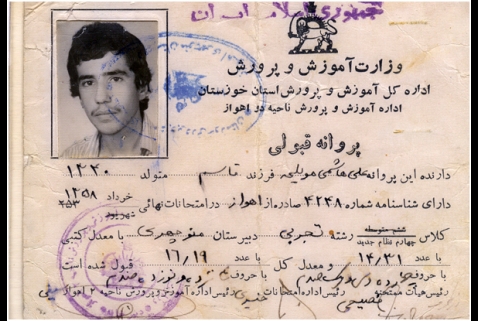 جمهوری اسلامی ایران
وزارت آموزش و پرورش
اداره کل آموزش و پرورش استان خوزستان
اداره آموزش و پرورش ناحیه ۲ اهواز
پروانه قبولی
دارنده این پروانه علی هاشمی فرزند قاسم متولد ۱۳۴۰
دارای شناسنامه شماره ۴۲۴۸ صادره از اهواز در امتحانات نهائی خرداد شهریور ۱۳۵۸
کلاس ششم متوسطه چهارم نظام جدید رشته تجربی دبیرستان منوچهری با معدل کتبی
با عدد ۱۴/۳۱ و معدل کل با عدد ۱۶/۱۹ قبول شده است
با حروف با حروف
رئیس هیأت ممتحنه رئیس اداره امتحانات رئیس اداره آموزش و پرورش ناحیه ۲ اهواز